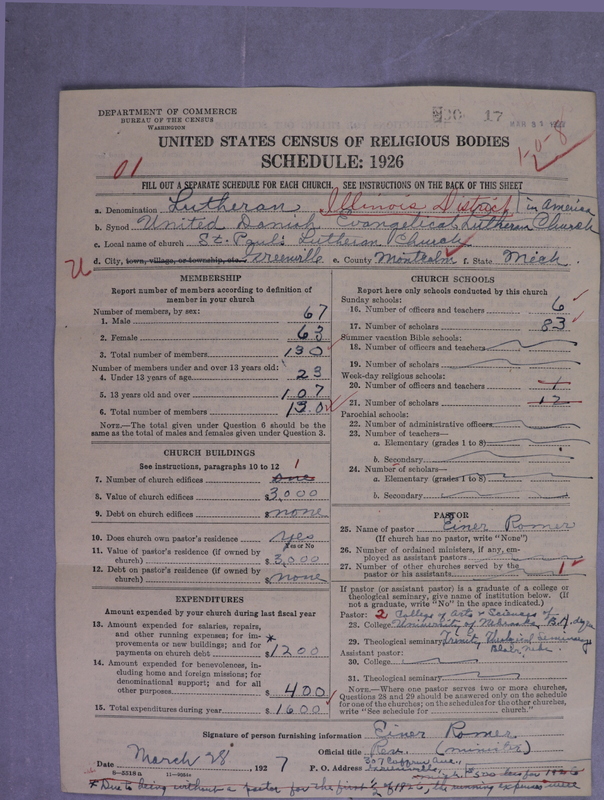 DEPARTMENT OF COMMERCE
BUREAU OF THE CENSUS
WASHINGTON
17
UNITED STATES CENSUS OF RELIGIOUS BODIES
SCHEDULE: 1926
1-0-8
01
FILL OUT A SEPARATE SCHEDULE FOR EACH CHURCH. SEE INSTRUCTIONS ON THE BACK OF THIS SHEET
a. Denomination Lutheran Illinois District in America
b. Synod United Danish Evangelical Lutheran Church
c. Local name of church St. Paul's Lutheran Church
d. City, town, village, or township, etc. Greenville e. County Montcalm f. State Mich.
MEMBERSHIP
Report number of members according to definition of member in your church
Number of members, by sex:
1. Male 67
2. Female 63
3. Total number of members 130
Number of members under and over 13 years old:
4. Under 13 years of age 23
5. 13 years old and over 107
6. Total number of members 130
NOTE.—The total given under Question 6 should be the same as the total of males and females given under Question 3.
CHURCH BUILDINGS
See instructions, paragraphs 10 to 12
7. Number of church edifices one 1
8. Value of church edifices $3,000
9. Debt on church edifices $none
10. Does church own pastor's residence? yes
Yes or No
11. Value of pastor's residence (if owned by church) $3,000
12. Debt on pastor's residence (if owned by church) $none
EXPENDITURES
Amount expended by your church during last fiscal year
13. Amount expended for salaries, repairs, and other running expenses; for improvements or new buildings; and for payments on church debt * $1200
14. Amount expended for benevolences, including home and foreign missions; for denominational support; and for all other purposes $400
15. Total expenditures during year $1600
CHURCH SCHOOLS
Report here only schools conducted by this church
Sunday schools:
16. Number of officers and teachers 6
17. Number of scholars 83
Summer vacation Bible schools:
18. Number of officers and teachers
19. Number of scholars
Week-day religious schools:
20. Number of officers and teachers 1
21. Number of scholars 12
Parochial schools:
22. Number of administrative officers
23. Number of teachers—
a. Elementary (grades 1 to 8)
b. Secondary
24. Number of scholars—
a. Elementary (grades 1 to 8)
b. Secondary
PASTOR
25. Name of pastor Einer Romer
(If church has no pastor, write "None")
26. Number of ordained ministers, if any, employed as assistant pastors
27. Number of other churches served by the pastor or his assistants 1
If pastor (or assistant pastor) is a graduate of a college or theological seminary, give name of institution below. (If not a graduate, write "No" in the space indicated.)
Pastor: 2 College of Arts & Sciences of
28. College University of Nebraska, B.A.
29. Theological seminary Trinity Theological Seminary
Blair, Nebr.
Assistant pastor:
30. College
31. Theological seminary
NOTE.—Where one pastor serves two or more churches, Questions 28 and 29 should be answered only on the schedule for one of the churches; on the schedules for the other churches, write "See schedule for church."
Signature of person furnishing information Einer Romer
Official title Rev. (minister)
Date March 28, 1927 P. O. Address 307 Cass Ave.,
Greenville
8—5518a
* Due to being without a pastor for the first of 1926, the running expenses were